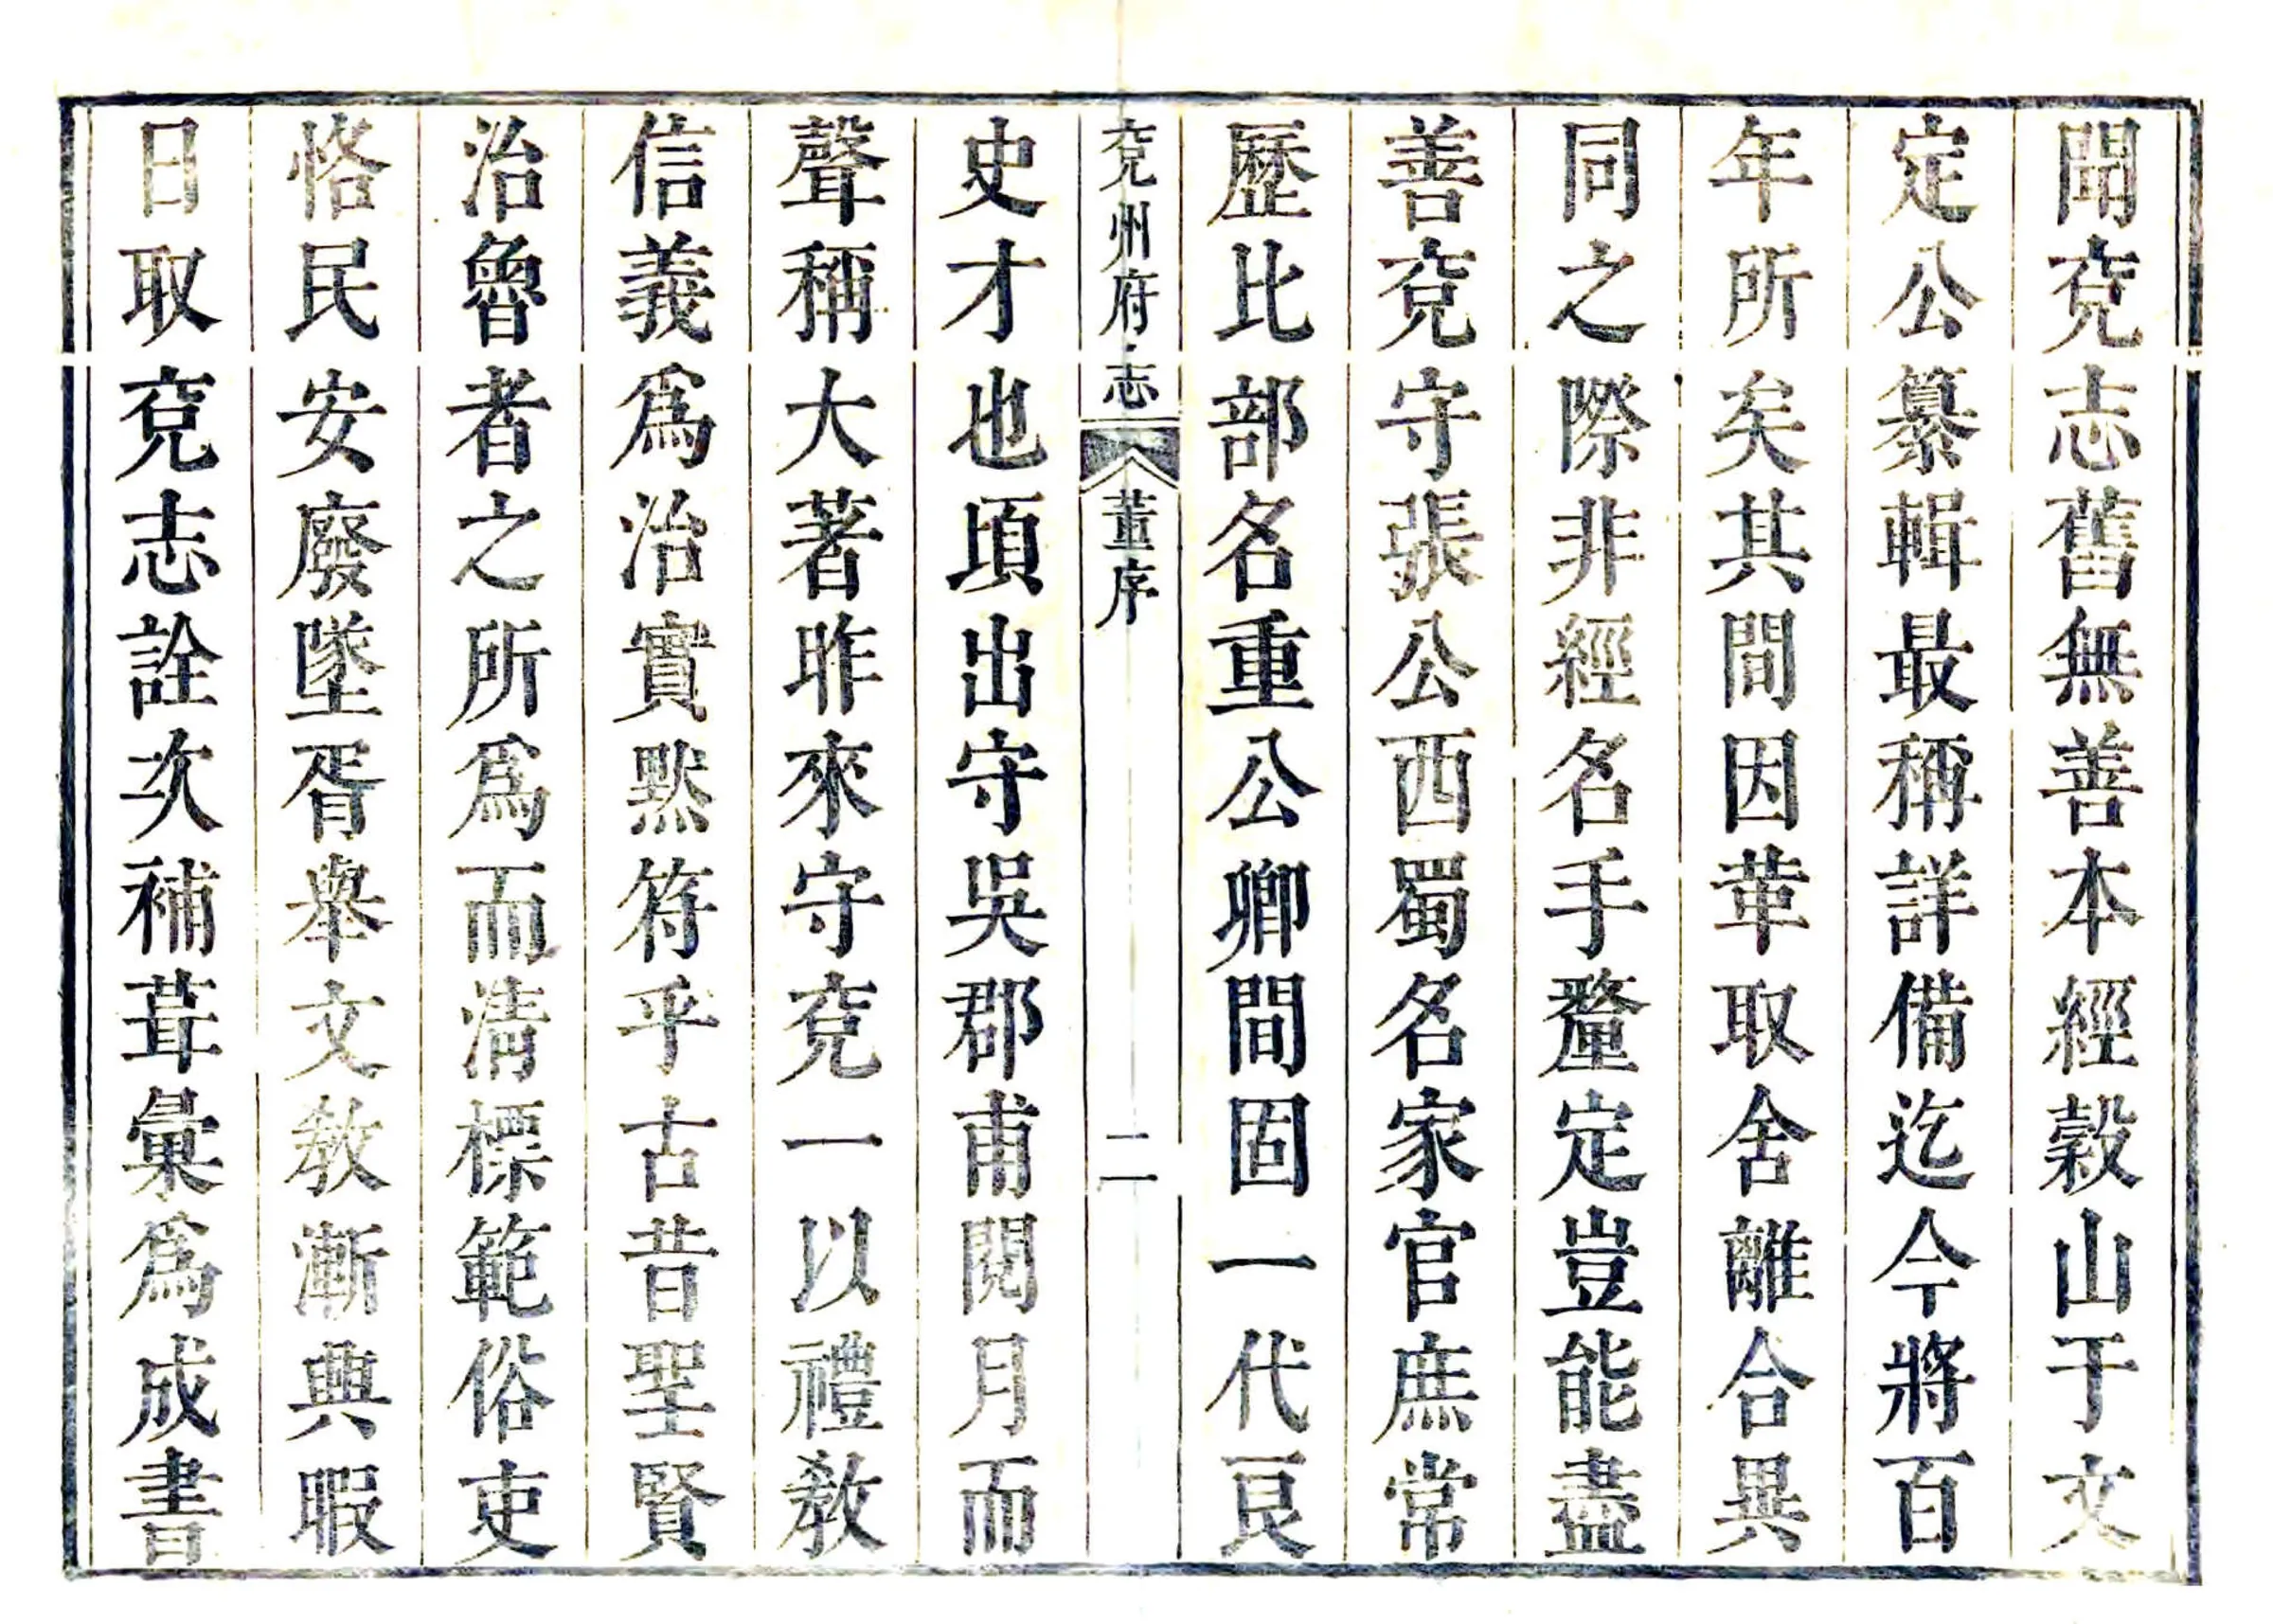 聞兖志舊無善本經穀山于文
定公纂輯最稱詳備迄今將百
年所矣其間因革取舍離合異
同之際非經名手釐定豈能盡
善兖守張公西蜀名家官庶常
歷比部名重公卿間固一代良
兖州府志 董序 二
史才也頃出守吳郡甫閱月而
聲稱大著昨來守兖一以禮教
信義爲治實默符乎古昔聖賢
治魯者之所爲而淸標範俗吏
恪民安廢墜胥舉文教漸興暇
日取兖志詮次補葺彙爲成書